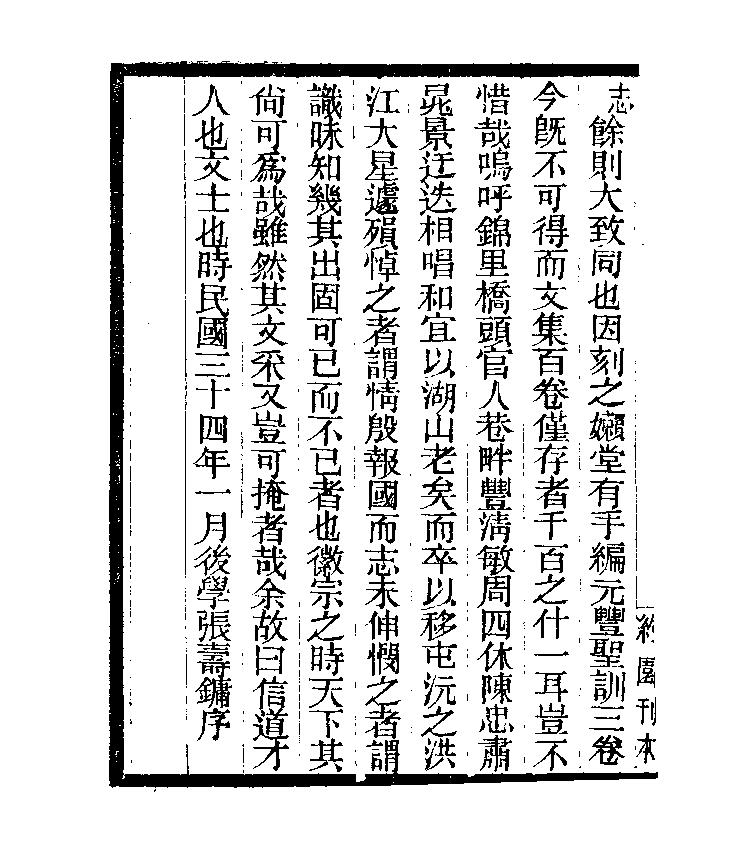 志餘則大致同也因刻之嬾堂有手編元豐聖訓三卷
今旣不可得而文集百卷僅存者千百之什一耳豈不
惜哉嗚呼錦里橋頭官人巷畔豐淸敏周四休陳忠肅
晁景迂迭相唱和宜以湖山老矣而卒以移屯沅之洪
江大星遽殞悼之者謂情殷報國而志未伸憫之者謂
識昧知幾其出固可已而不已者也徽宗之時天下其
尙可爲哉雖然其文采又豈可掩者哉余故曰信道才
人也文士也時民國三十四年一月後學張壽鏞序
約園刊本